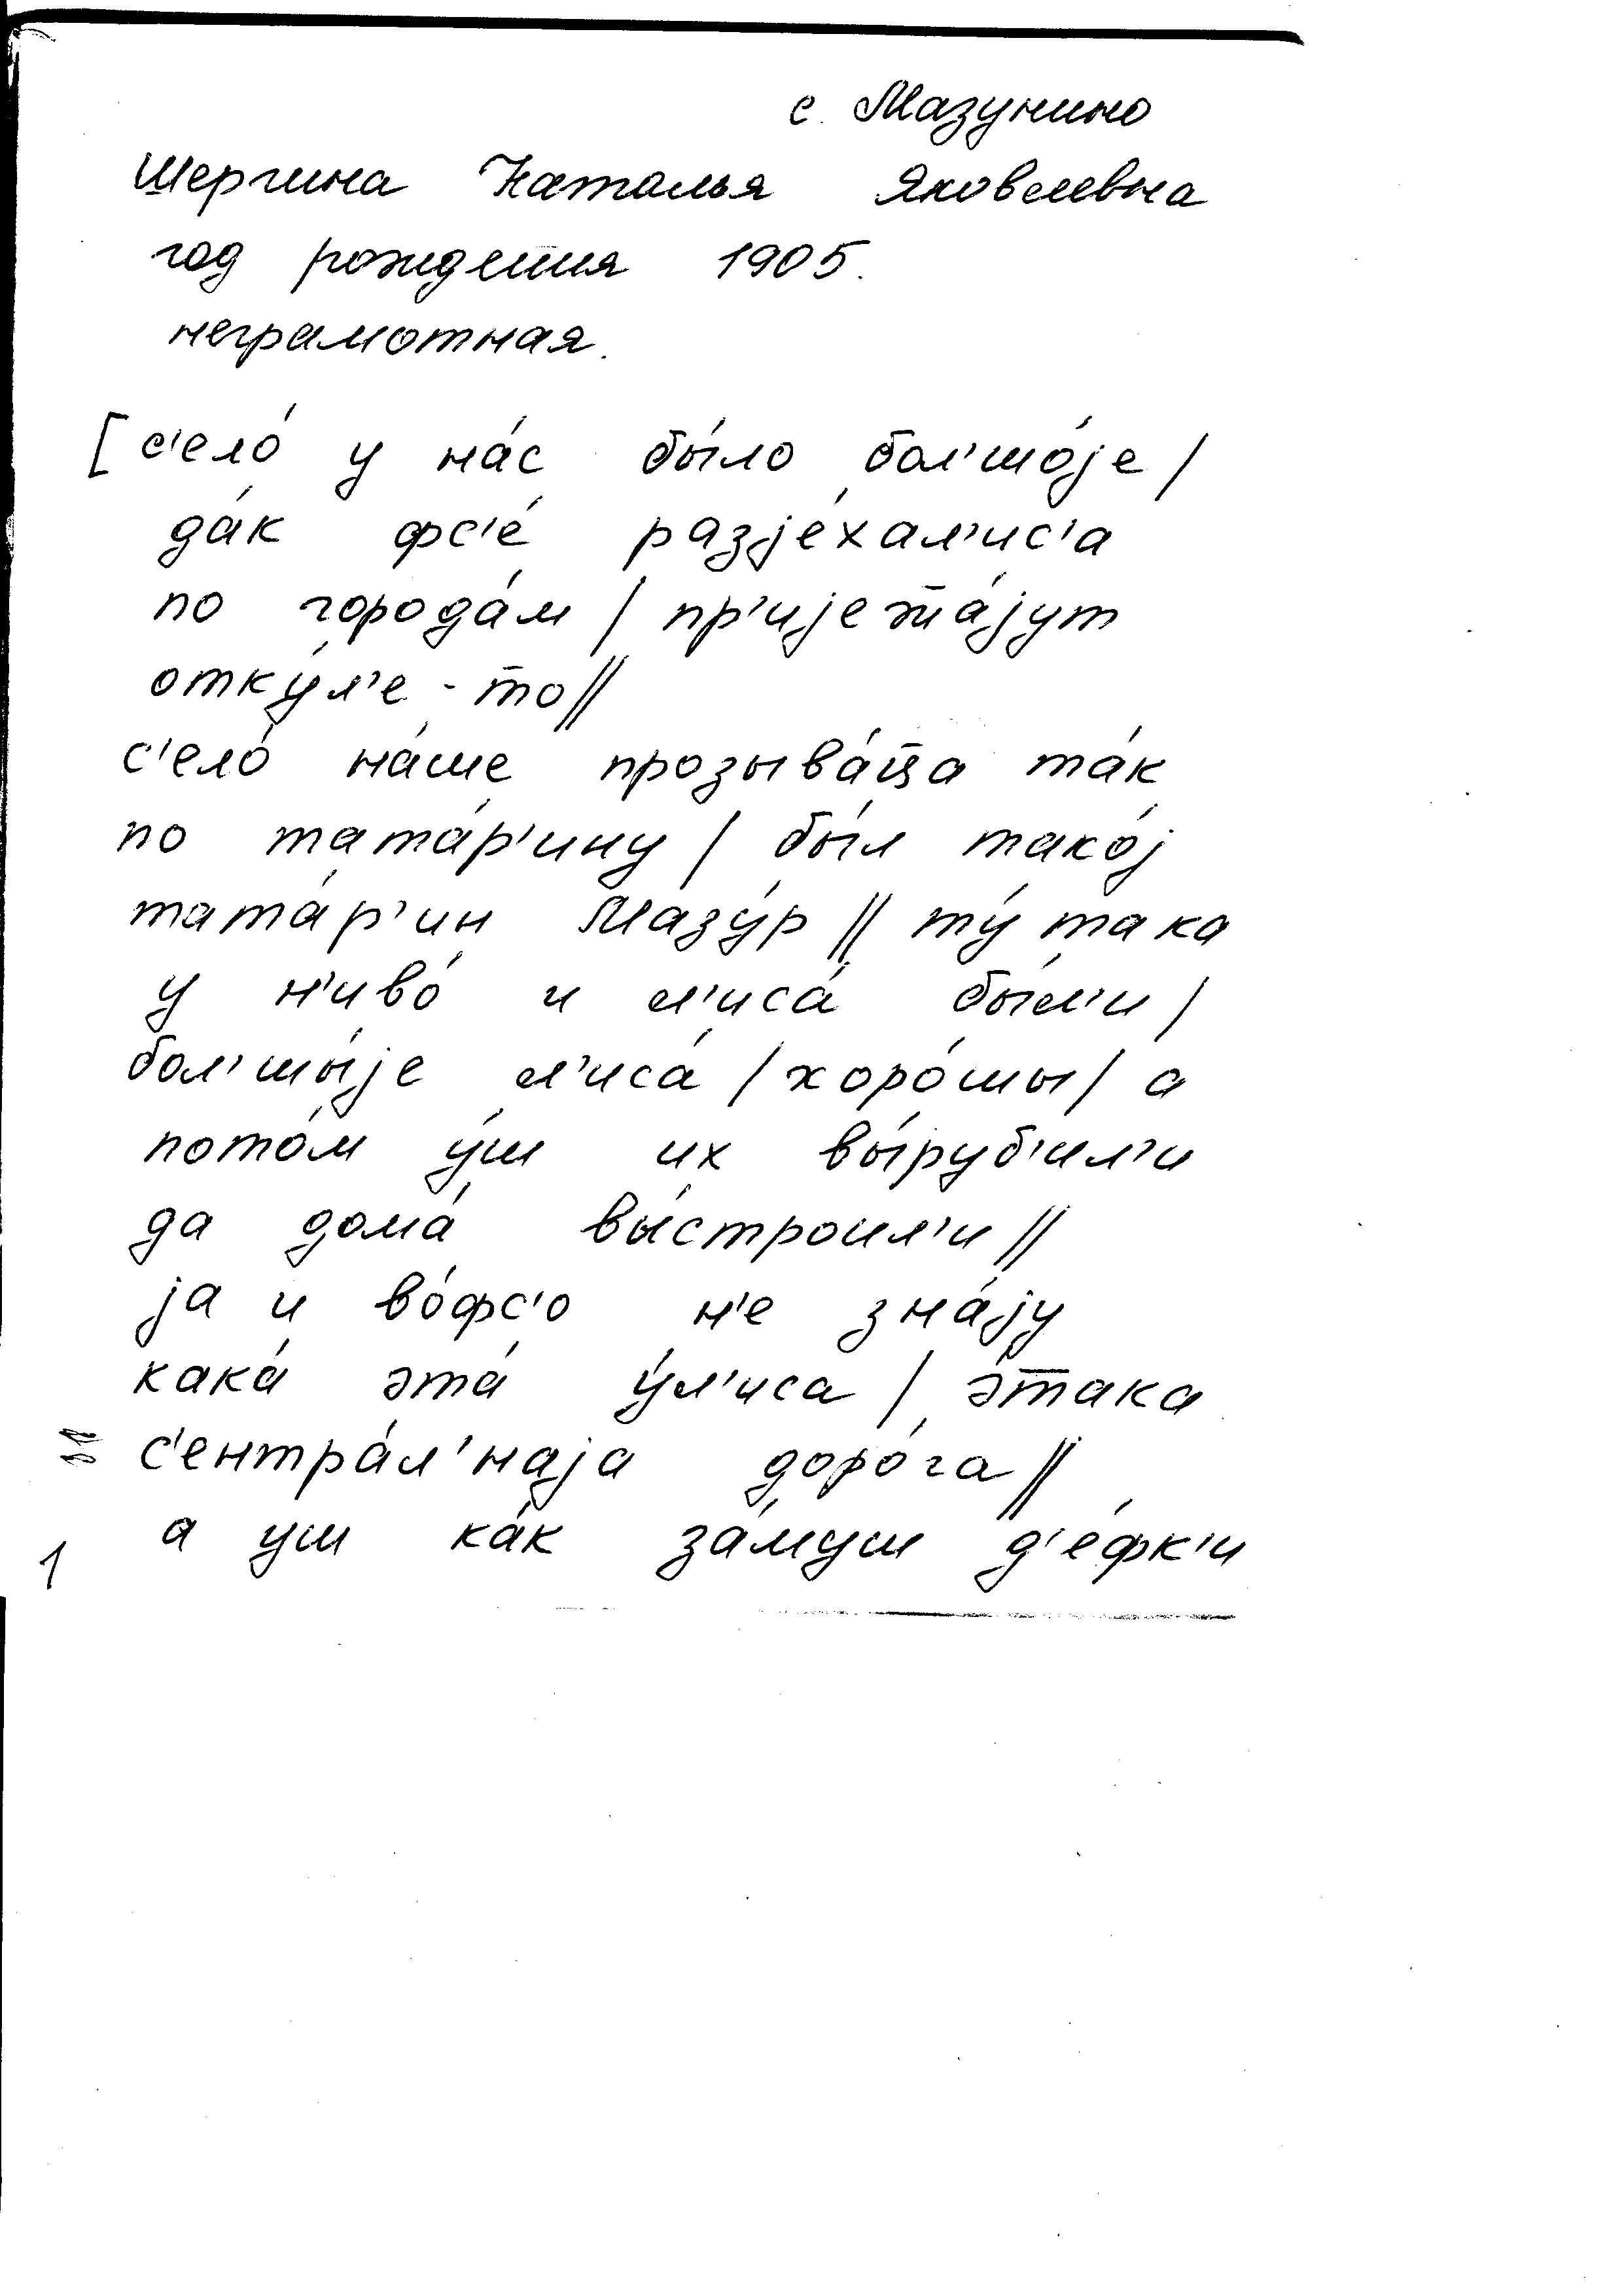 с. Мазунино
Шергина Наталья Яковлевна
год рождения 1905.
неграмотная.
[с'ело́ у на́с бы́ло бол'шо́jе /
да́к фс'е́ разjе́хал'ис'а
по города́м / пр'иjежа́jут
отку́л'е-то //
с'ело́ на́ше прозыва́ц̄а та́к
по тата́р'ину / бы́л тако́j
тата́р'ин Мазу́р // ту́ така
у н'иво́ и л'иса́ бы́л'и /
бол'шы́jе л'иса́ / хоро́шы / а
пото́м у́ш их вы́руб'ил'и
да дома́ вы́строил'и //
jа и во́фс'о н'е зна́jу
кака́ эта́ у́л'иса / э́така
с'ентра́л'наjа доро́га //
а уш ка́к за́муш д'е́фк'и
1